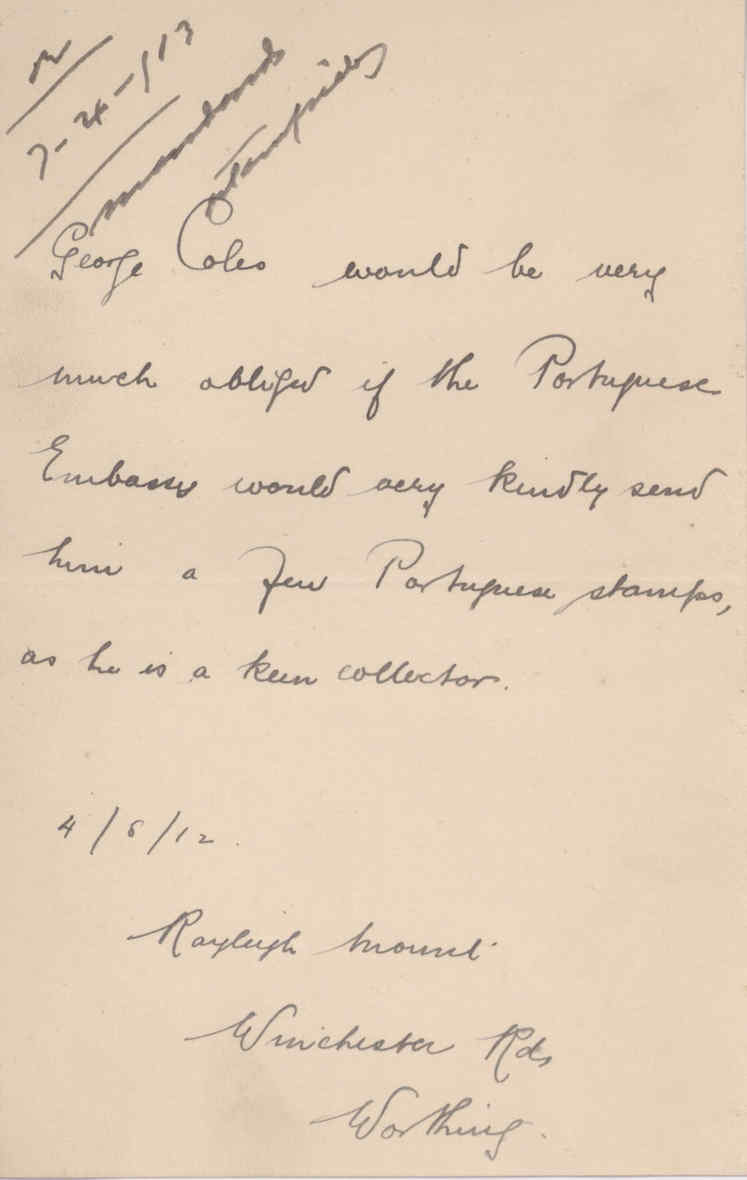 7-24-1913
George Coles would be very
much obliged if the Portuguese
Embassy would very kindly send
him a few Portuguese stamps,
as he is a keen collector.
4/6/12.
Rayleigh Mount
Winchester Rd,
Worthing.